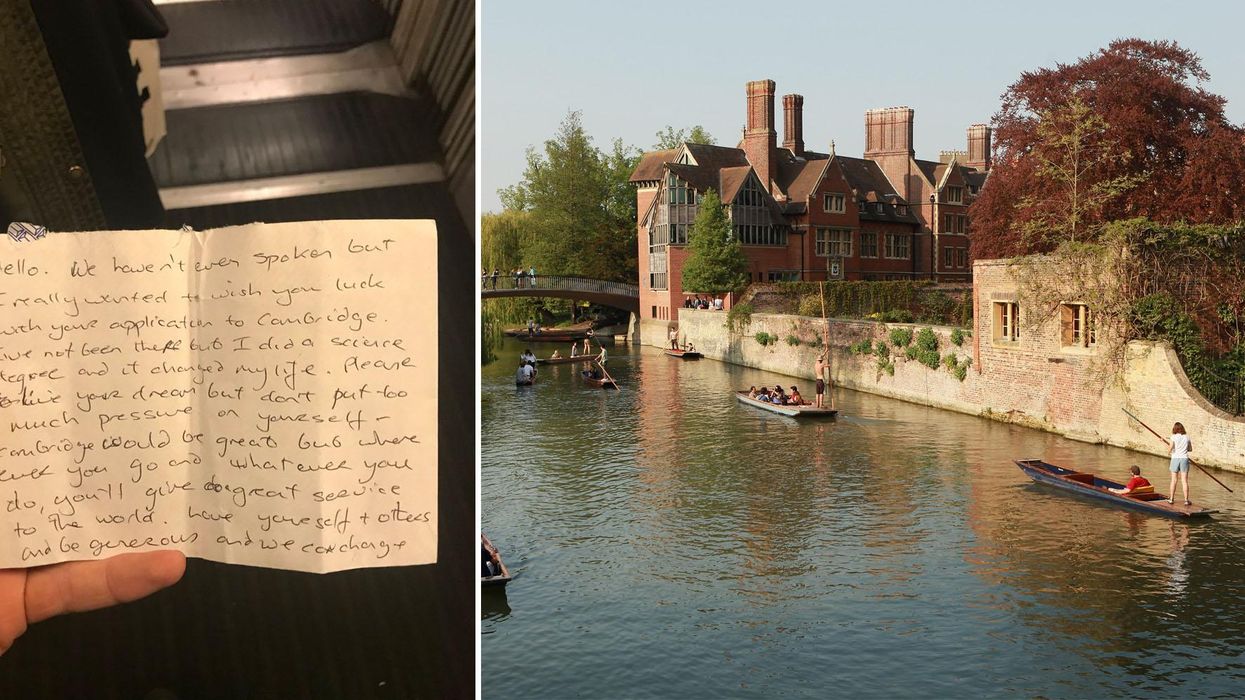 Hello. We haven't even spoken but
I really wanted to wish you luck
with your application to Cambridge
I've not been there but I did a science
degree and it changed my life. Please
live your dream but don't put too
much pressure on yourself -
Cambridge would be great but where
ever you go and whatever you
do, you'll give great service
to the world. have yourself + others
and be generous and we can change